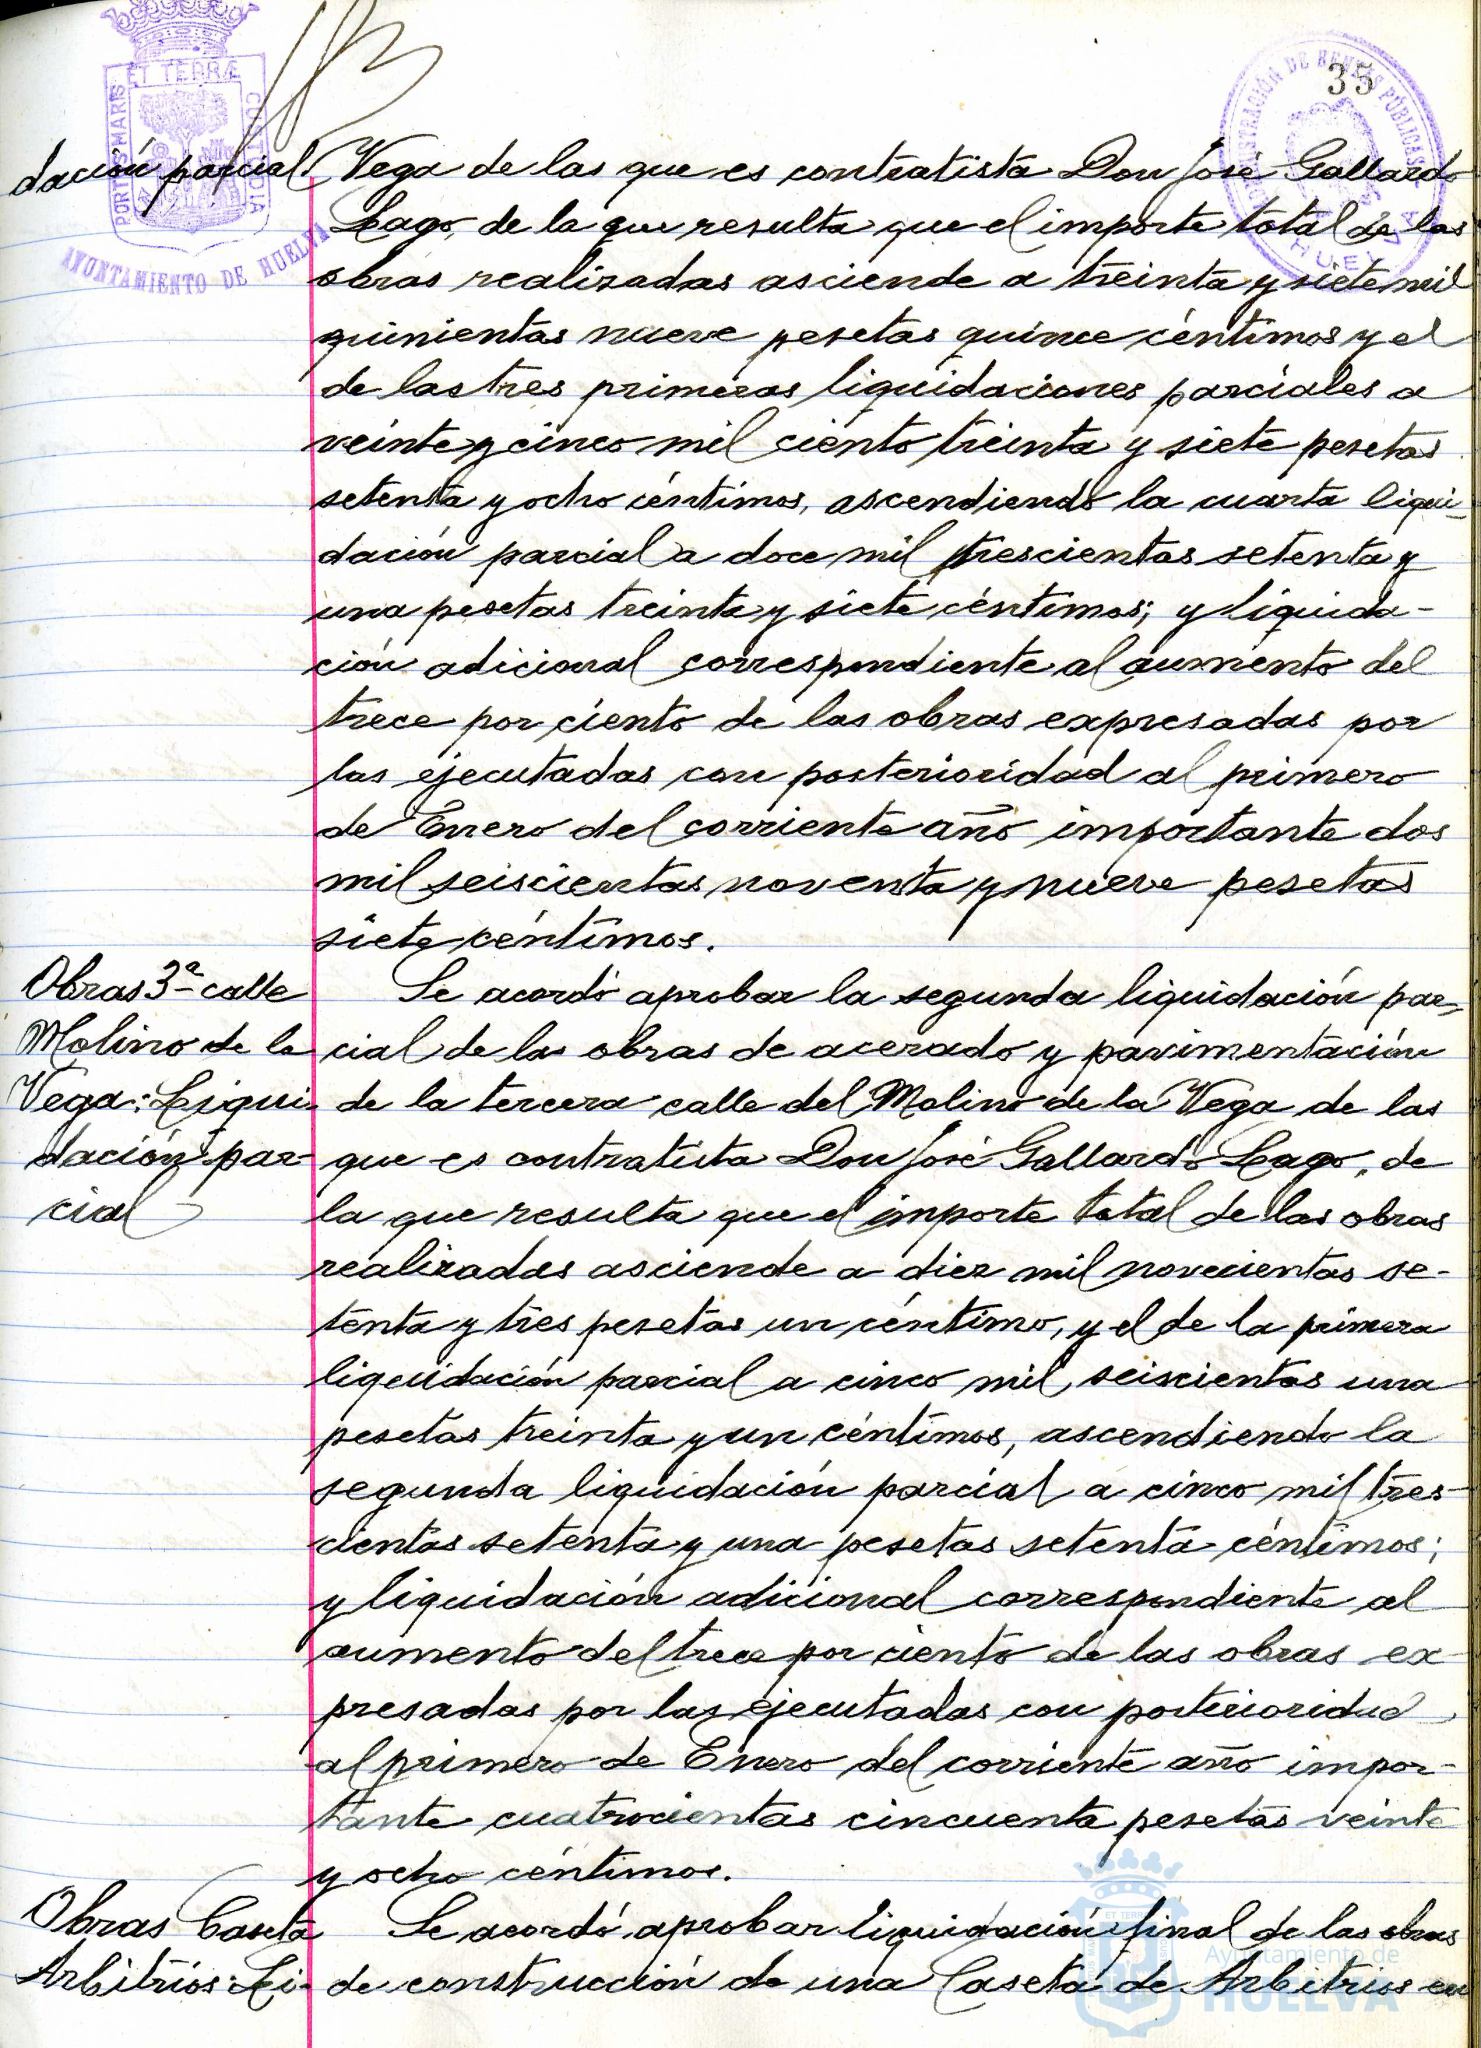 35
PORTUS MARIS ET TERRÆ CUSTODIA
AYUNTAMIENTO DE HUELVA
dación parcial
Vega de las que es contratista Don José Gallardo
Lago, de la que resulta que el importe total de las
obras realizadas asciende a treinta y siete mil
quinientas nueve pesetas quince céntimos y el
de las tres primeras liquidaciones parciales a
veinte y cinco mil ciento treinta y siete pesetas
setenta y ocho céntimos, ascendiendo la cuarta liqui-
dación parcial a doce mil trescientas setenta y
una pesetas treinta y siete céntimos; y liquida-
ción adicional correspondiente al aumento del
trece por ciento de las obras expresadas por
las ejecutadas con posterioridad al primero
de Enero del corriente año importante dos
mil seiscientas noventa y nueve pesetas
siete céntimos.
Obras 3ª calle
Molino de la
Vega: Liqui-
dación par-
cial
Se acordó aprobar la segunda liquidación par-
cial de las obras de acerado y pavimentación
de la tercera calle del Molino de la Vega de las
que es contratista Don José Gallardo Lago, de
la que resulta que el importe total de las obras
realizadas asciende a diez mil novecientas se-
tenta y tres pesetas un céntimo, y el de la primera
liquidación parcial a cinco mil seiscientas una
pesetas treinta y un céntimos, ascendiendo la
segunda liquidación parcial a cinco mil tres-
cientas setenta y una pesetas setenta céntimos;
y liquidación adicional correspondiente al
aumento del trece por ciento de las obras ex-
presadas por las ejecutadas con posterioridad
al primero de Enero del corriente año impor-
tante cuatrocientas cincuenta pesetas veinte
y ocho céntimos.
Obras Caseta
Arbitrios: Li-
Se acordó aprobar liquidación final de las obras
de construcción de una Caseta de Arbitrios en
Ayuntamiento de
HUELVA